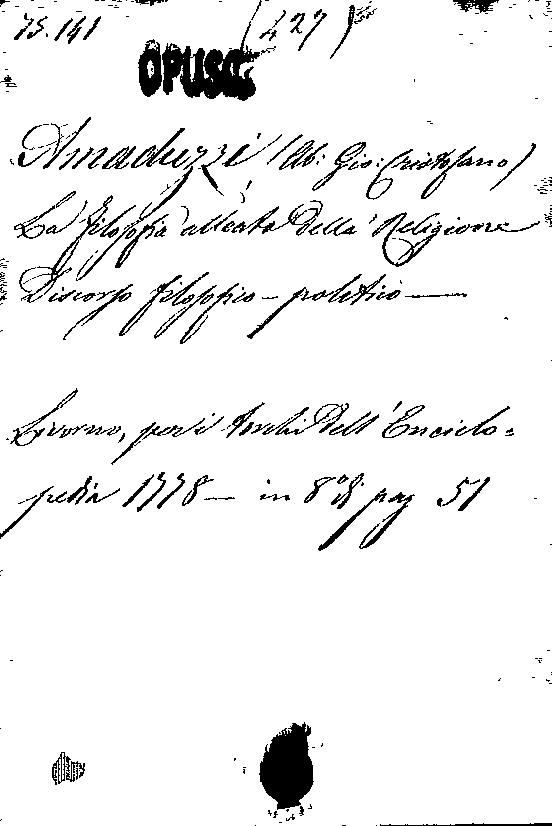 75.141 (427)
OPUSC.
Amaduzzi (Ab: Gio: Cristofano)
La filosofia alleata della Religione
Discorso filosofico-politico —
Livorno, per i torchi dell'Enciclo=
pedia 1778 — in 8° di pag 51